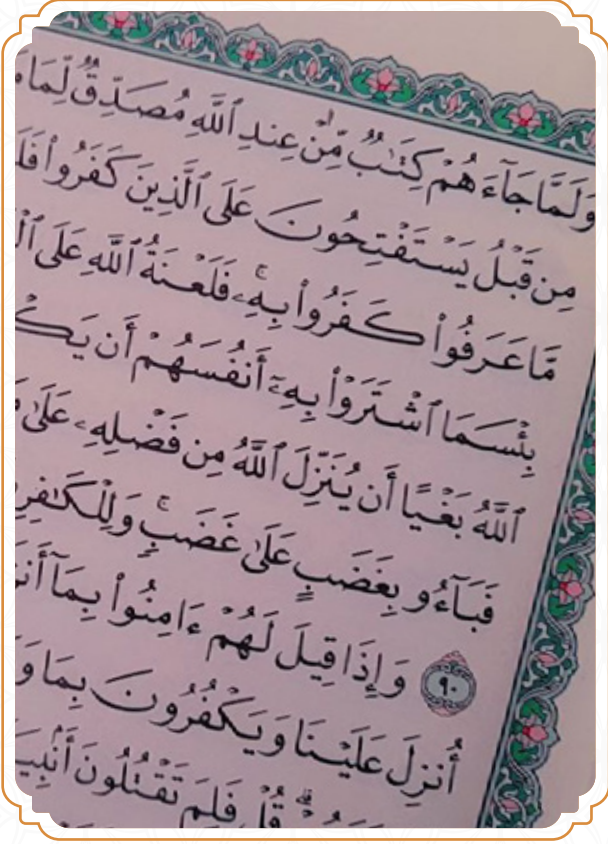 وَلَمَّا جَآءَهُمْ كِتَٰبٌ مِّنْ عِندِ ٱللَّهِ مُصَدِّقٌ لِّمَا
مِن قَبْلُ يَسْتَفْتِحُونَ عَلَى ٱلَّذِينَ كَفَرُوا۟
مَّا عَرَفُوا۟ كَفَرُوا۟ بِهِۦ ۚ فَلَعْنَةُ ٱللَّهِ عَلَى
بِئْسَمَا ٱشْتَرَوْا۟ بِهِۦٓ أَنفُسَهُمْ أَن
ٱللَّهُ بَغْيًا أَن يُنَزِّلَ ٱللَّهُ مِن فَضْلِهِۦ عَلَىٰ
فَبَآءُو بِغَضَبٍ عَلَىٰ غَضَبٍ ۚ
٩٠ وَإِذَا قِيلَ لَهُمْ ءَامِنُوا۟ بِمَآ
أُنزِلَ عَلَيْنَا وَيَكْفُرُونَ بِمَا
قُلْ فَلِمَ تَقْتُلُونَ